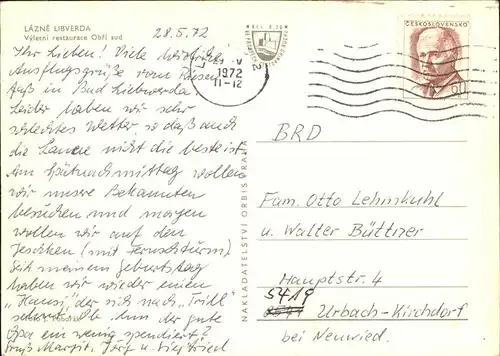 LÁZNĚ LIBVERDA
Výletní restaurace Obří sud
28.5.72
Ihr Lieben! Viele herzliche
Ausflugsgrüße vom Riesen-
faß in Bad Liebwerda.
Leider haben wir sehr
schlechtes Wetter, so daß auch
die Laune nicht die beste ist.
Am Spätnachmittag wollen
wir unsere Bekannten
besuchen und morgen
wollen wir auf den
Jeschken (mit Fernsehturm).
Seit meinem Geburtstag
haben wir wieder einen
"Hansi", der sich nach "Trill"
sehnt. Ob ihm der gute
Opa ein wenig spendiert?
Gruß Margit, Jörg u. Siegfried
NAKLADATELSTVÍ ORBIS PRAHA
1972
11-12
ČESKOSLOVENSKO
60
BRD
Fam. Otto Lehmkuhl
u. Walter Büttner
Hauptstr. 4
5419
Urbach-Kirchdorf
bei Neuwied.